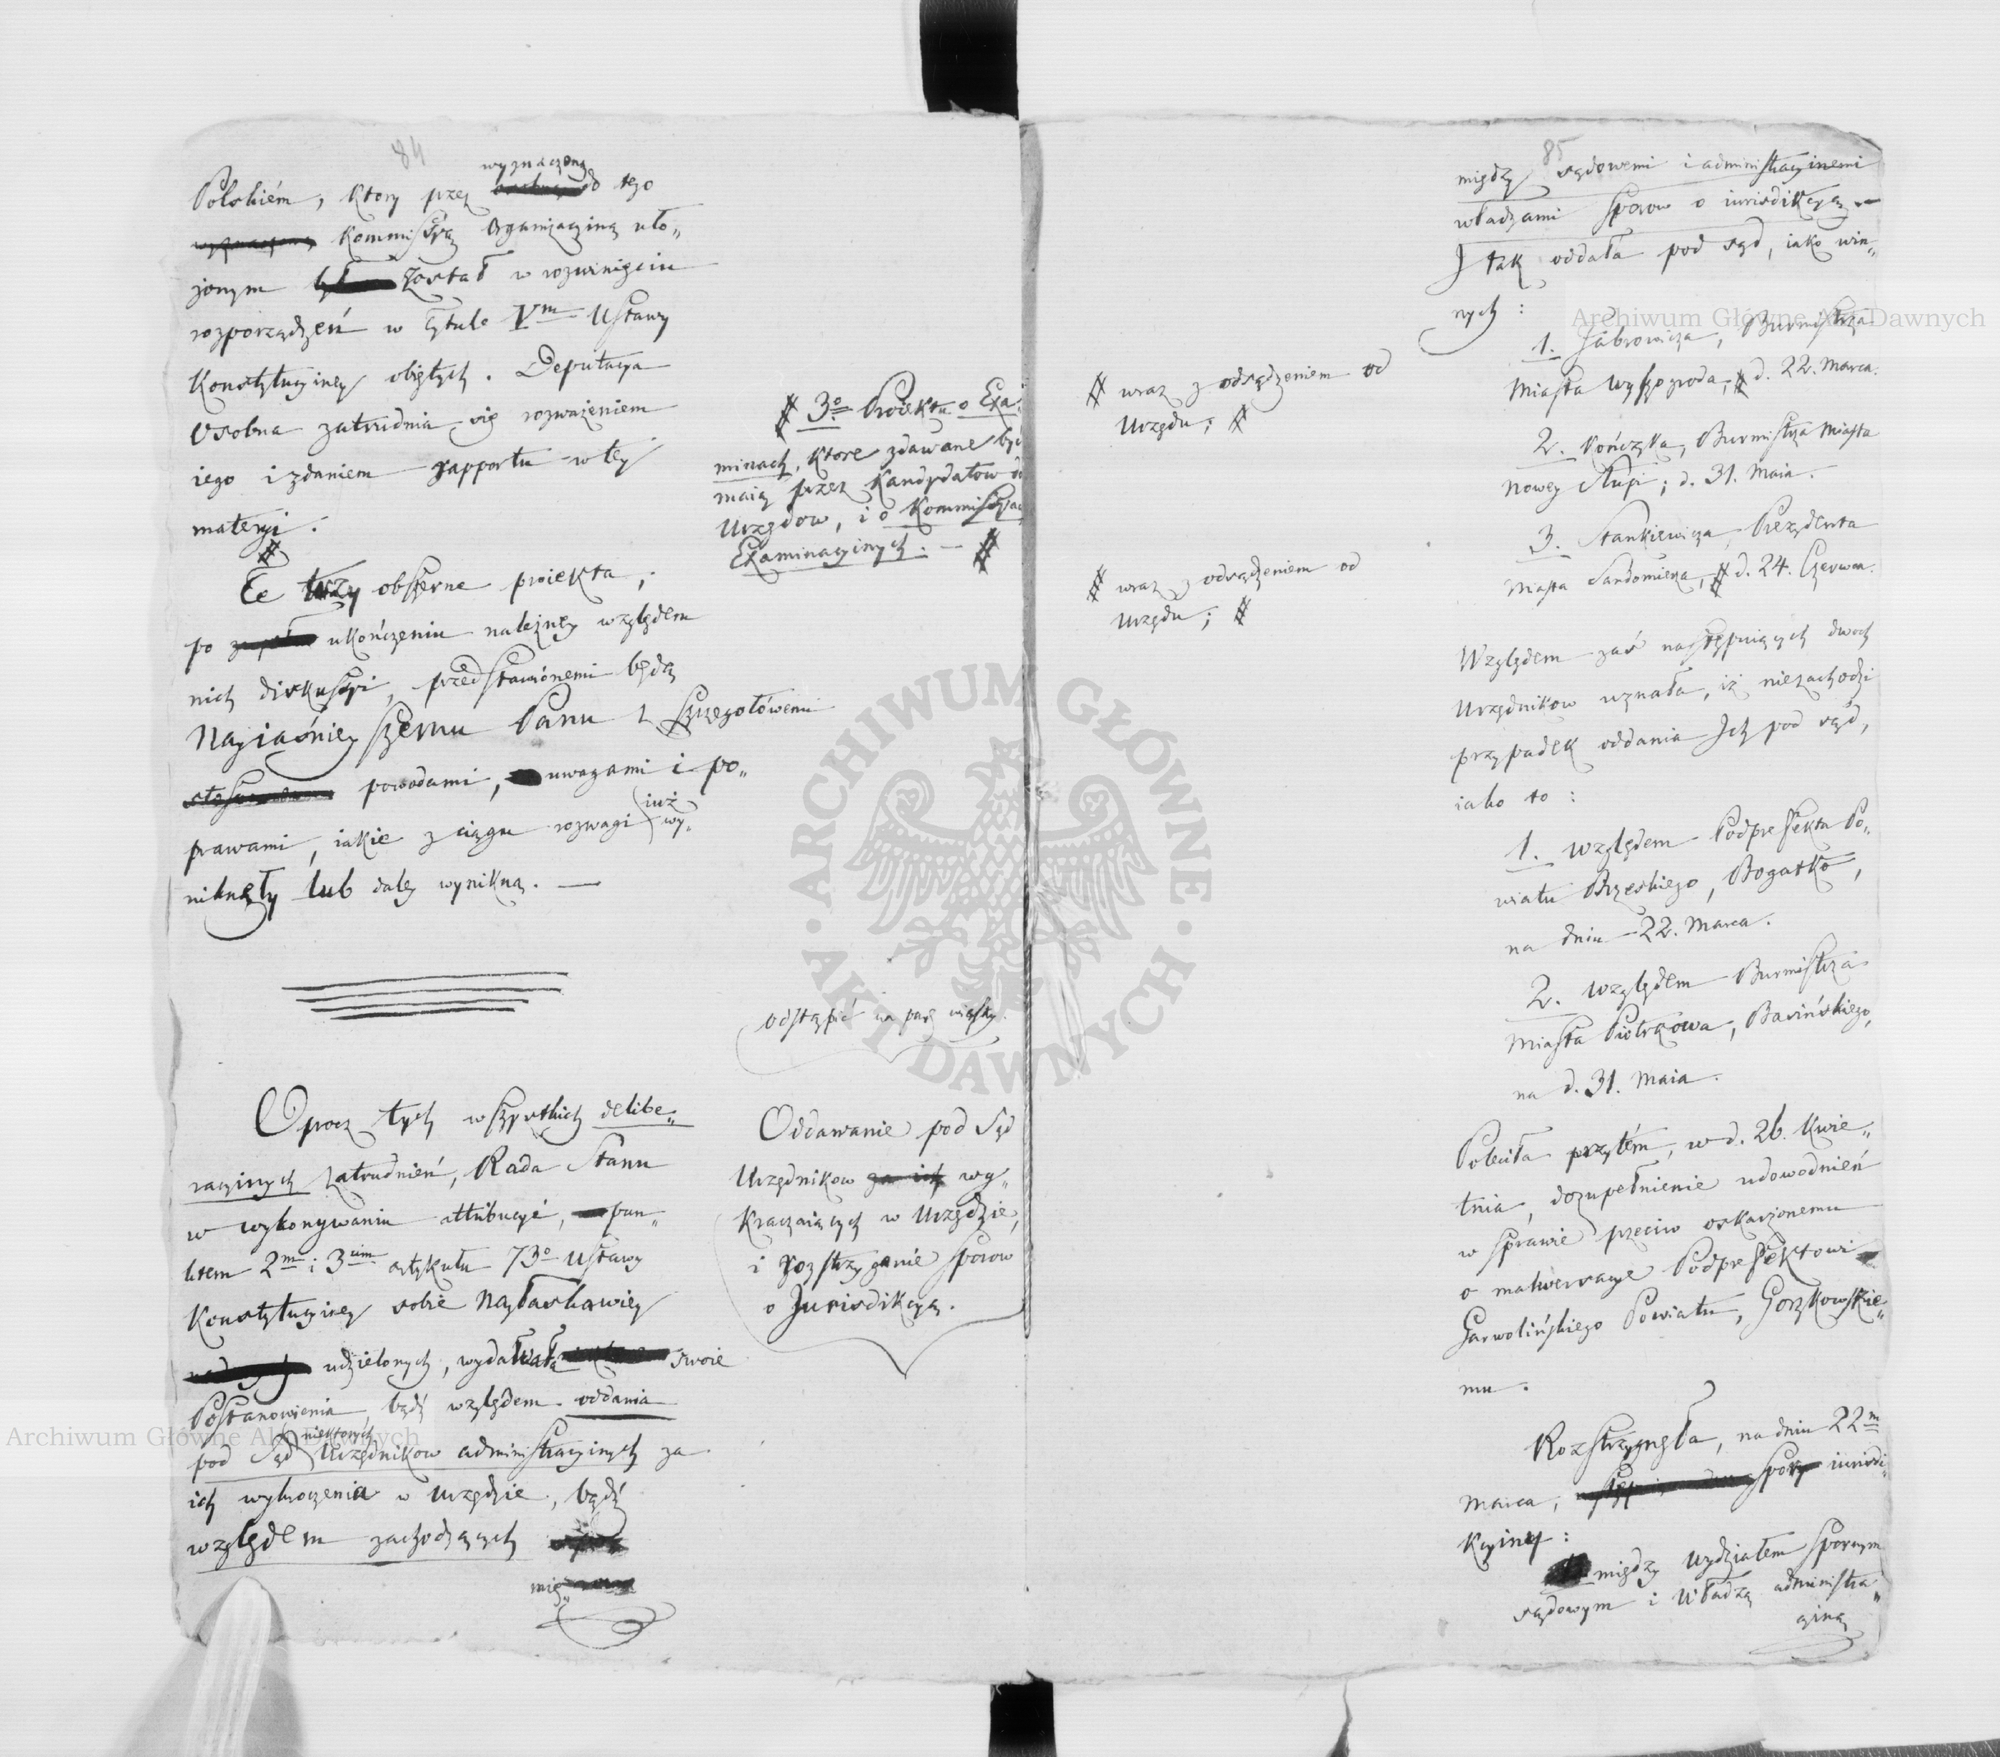 84
wyznaczoną
Polskiém, ktory przez do tego
wyznaczoną Kommissyą Organizacyiną uło„
żonym został w rozwinięciu
rozporządzeń w Tytule Vm Ustawy
Konstytucyiney obiętych. Deputacya
Osobna zatrudnia się rozważeniem
iego i zdaniem rapportu w tey
materyi.
#
Te trzy obszerne proiekta,
po ukończeniu należney względem
nich diskussyi, przedstawionemi będą
Nayiaśnieyszemu Panu z szczegołówemi
powodami, uwagami i po„
iuż
prawami, iakie z ciągu rozwagi wy„
niknęły lub daley wynikną. —
Oprocz tych wszystkich delibe„
racyinych zatrudnień, Rada Stanu
w wykonywaniu attribucyi, pun„
ktem 2m i 3cim artykułu 73o Ustawy
Konstytucyiney sobie Nayłaskawiey
udzielonych, wydawała swoie
Postanowienia, bądź względem oddania
niektorych
pod Sąd Urzędnikow administracyinych za
ich wykroczenia w Urzędzie, bądź
względem zachodzących
mię„
# 3o Proiektu o Exa„
minach, ktore zdawane być
maią przez Kandydatow do
Urzędow, i o Kommissyiach
Examinacyinych. — #
odstąpić na parę
Oddawanie pod Sąd
Urzędnikow za ich wy„
kraczaiących w Urzędzie,
i rozstrzyganie sporow
o Jurisdikcyą.
# wraz z odsądzeniem od
Urzędu; #
# wraz z odsądzeniem od
Urzędu; #
85
między sądowemi i administracyinemi
władzami sporow o iurisdikcyą. —
I tak oddała pod sąd, iako win„
nych:
1. Jabrowicza, Burmistrza
Miasta Wyszogroda, # d. 22. Marca.
2. Kończyka, Burmistrza Miasta
Nowey Słupi; d. 31. Maia.
3. Stankiewicza, Prezydenta
Miasta Sandomierza, # d. 24. Czerwca.
Względem zaś następuiących dwoch
Urzędnikow uznała, iż niezachodzi
przypadek oddania Ich pod sąd,
iako to:
1. względem Podprefekta Po„
wiatu Brzeskiego, Bogatko,
na dniu 22. Marca.
2. względem Burmistrza
Miasta Piotrkowa, Basińskiego,
na d. 31. Maia.
Poleciła przytém, w d. 26. Kwie„
tnia, dozupełnienie udowodnień
w sprawie przeciw oskarżonemu
o malwersacye Podprefektowi
Garwolińskiego Powiatu, Gorzkowskie„
mu.
Rozstrzygnęła, na dniu 22m
Marca, spory iurisdi„
kcyiny:
między Wydziałem spornym
sądowym i Władzą administra„
cyiną
Archiwum Główne Akt Dawnych
Archiwum Główne Akt Dawnych
ARCHIWUM GŁÓWNE · AKT DAWNYCH ·